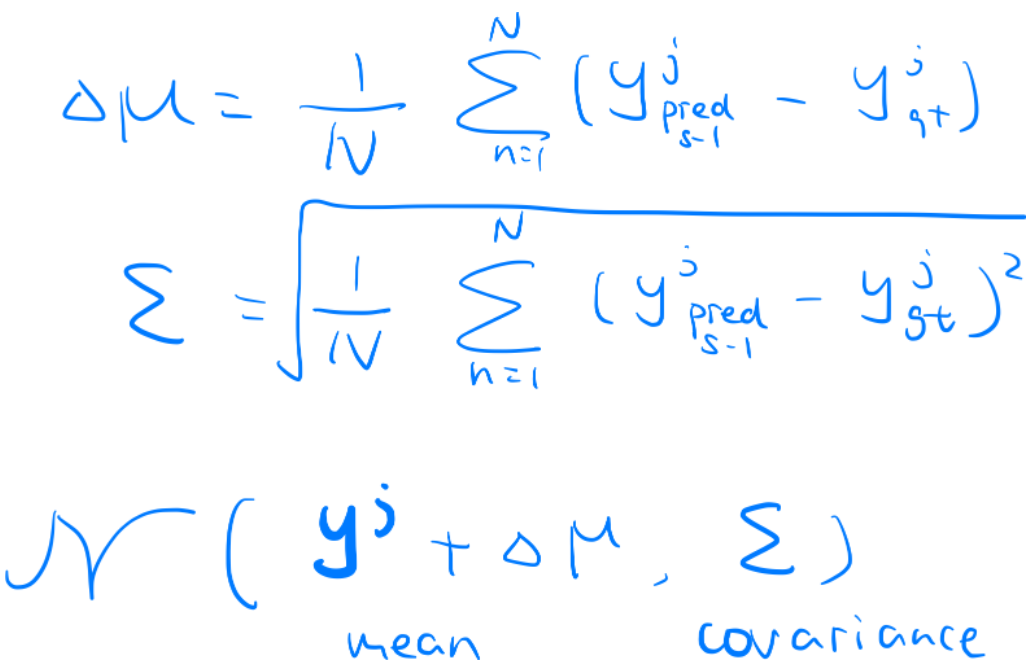 Δμ = 1/N ∑_{n=1}^{N} (y^j_{pred_{s-1}} - y^j_{gt})
Σ = √(1/N ∑_{n=1}^{N} (y^j_{pred_{s-1}} - y^j_{gt})²)
𝒩 ( y^j + Δμ, Σ )
mean covariance